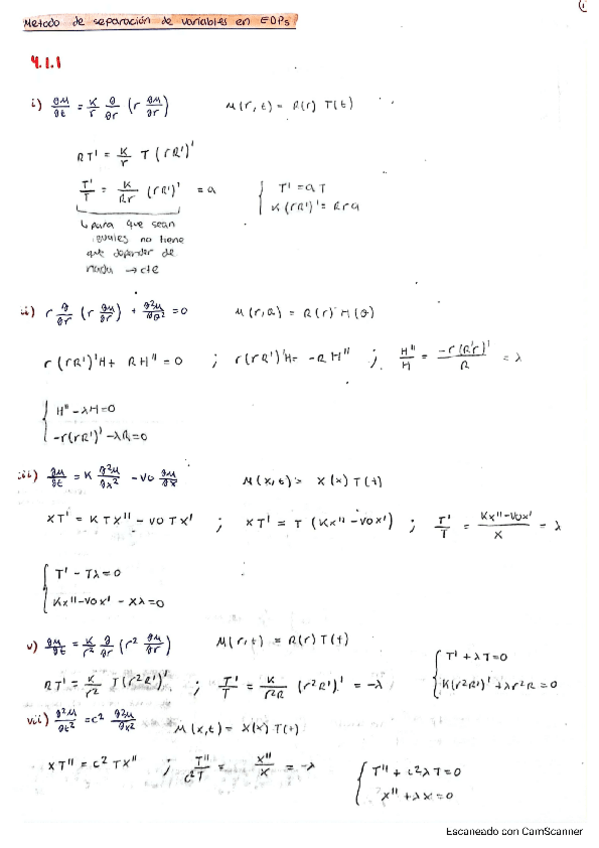 Metodo de separación de variables en EDPs
4.1.1
i) ∂u/∂t = K/r ∂/∂r (r ∂u/∂r)    u(r,t) = R(r) T(t)
RT' = K/r T (rR')'
T'/T = K/Rr (rR')' = a    { T' = aT
K(rR')' = Rra
↳ para que sean
iguales no tiene
que depender de
nada → cte
ii) r ∂/∂r (r ∂u/∂r) + ∂²u/∂θ² = 0    u(r,θ) = R(r) H(θ)
r(rR')'H + RH'' = 0 ; r(rR')'H = -RH'' ; H''/H = -r(R'r)'/R = λ
{ H'' - λH = 0
-r(rR')' - λR = 0
iii) ∂u/∂t = K ∂²u/∂x² - Vo ∂u/∂x    u(x,t) = X(x) T(t)
XT' = KTX'' - VoTX' ; XT' = T (KX'' - VoX') ; T'/T = KX''-VoX'/X = λ
{ T' - Tλ = 0
KX'' - VoX' - Xλ = 0
v) ∂u/∂t = K/r² ∂/∂r (r² ∂u/∂r)    u(r,t) = R(r) T(t)
RT' = K/r² T(r²R')' ; T'/T = K/r²R (r²R')' = -λ    { T' + λT = 0
K(r²R')' + λr²R = 0
vii) ∂²u/∂t² = c² ∂²u/∂x²    u(x,t) = X(x) T(t)
XT'' = c² TX'' ; T''/c²T = X''/X = -λ    { T'' + c²λT = 0
X'' + λX = 0
Escaneado con CamScanner